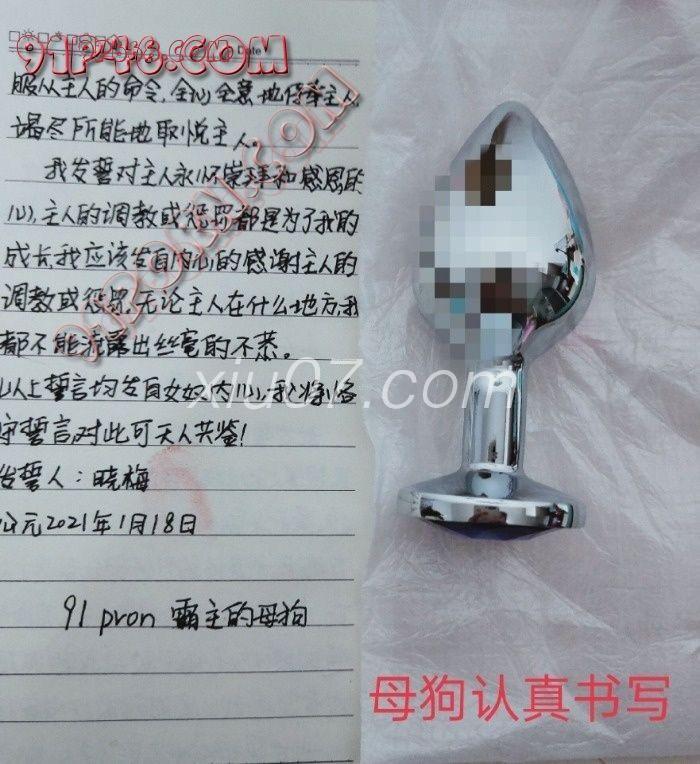 91P46.COM
Date
服从主人的命令,全心全意地侍奉主人,
竭尽所能地取悦主人。
我发誓对主人永怀崇拜和感恩的
心,主人的调教或惩罚都是为了我的
成长,我应该发自内心的感谢主人的
调教或惩罚,无论主人在什么地方,我
都不能流露出丝毫的不恭。
以上誓言均发自女奴内心,我将恪
守誓言对此可天人共鉴!
发誓人:晓梅
公元2021年1月18日
91 pron 霸主的母狗
91PORNY.COM
xiu07.com
母狗认真书写